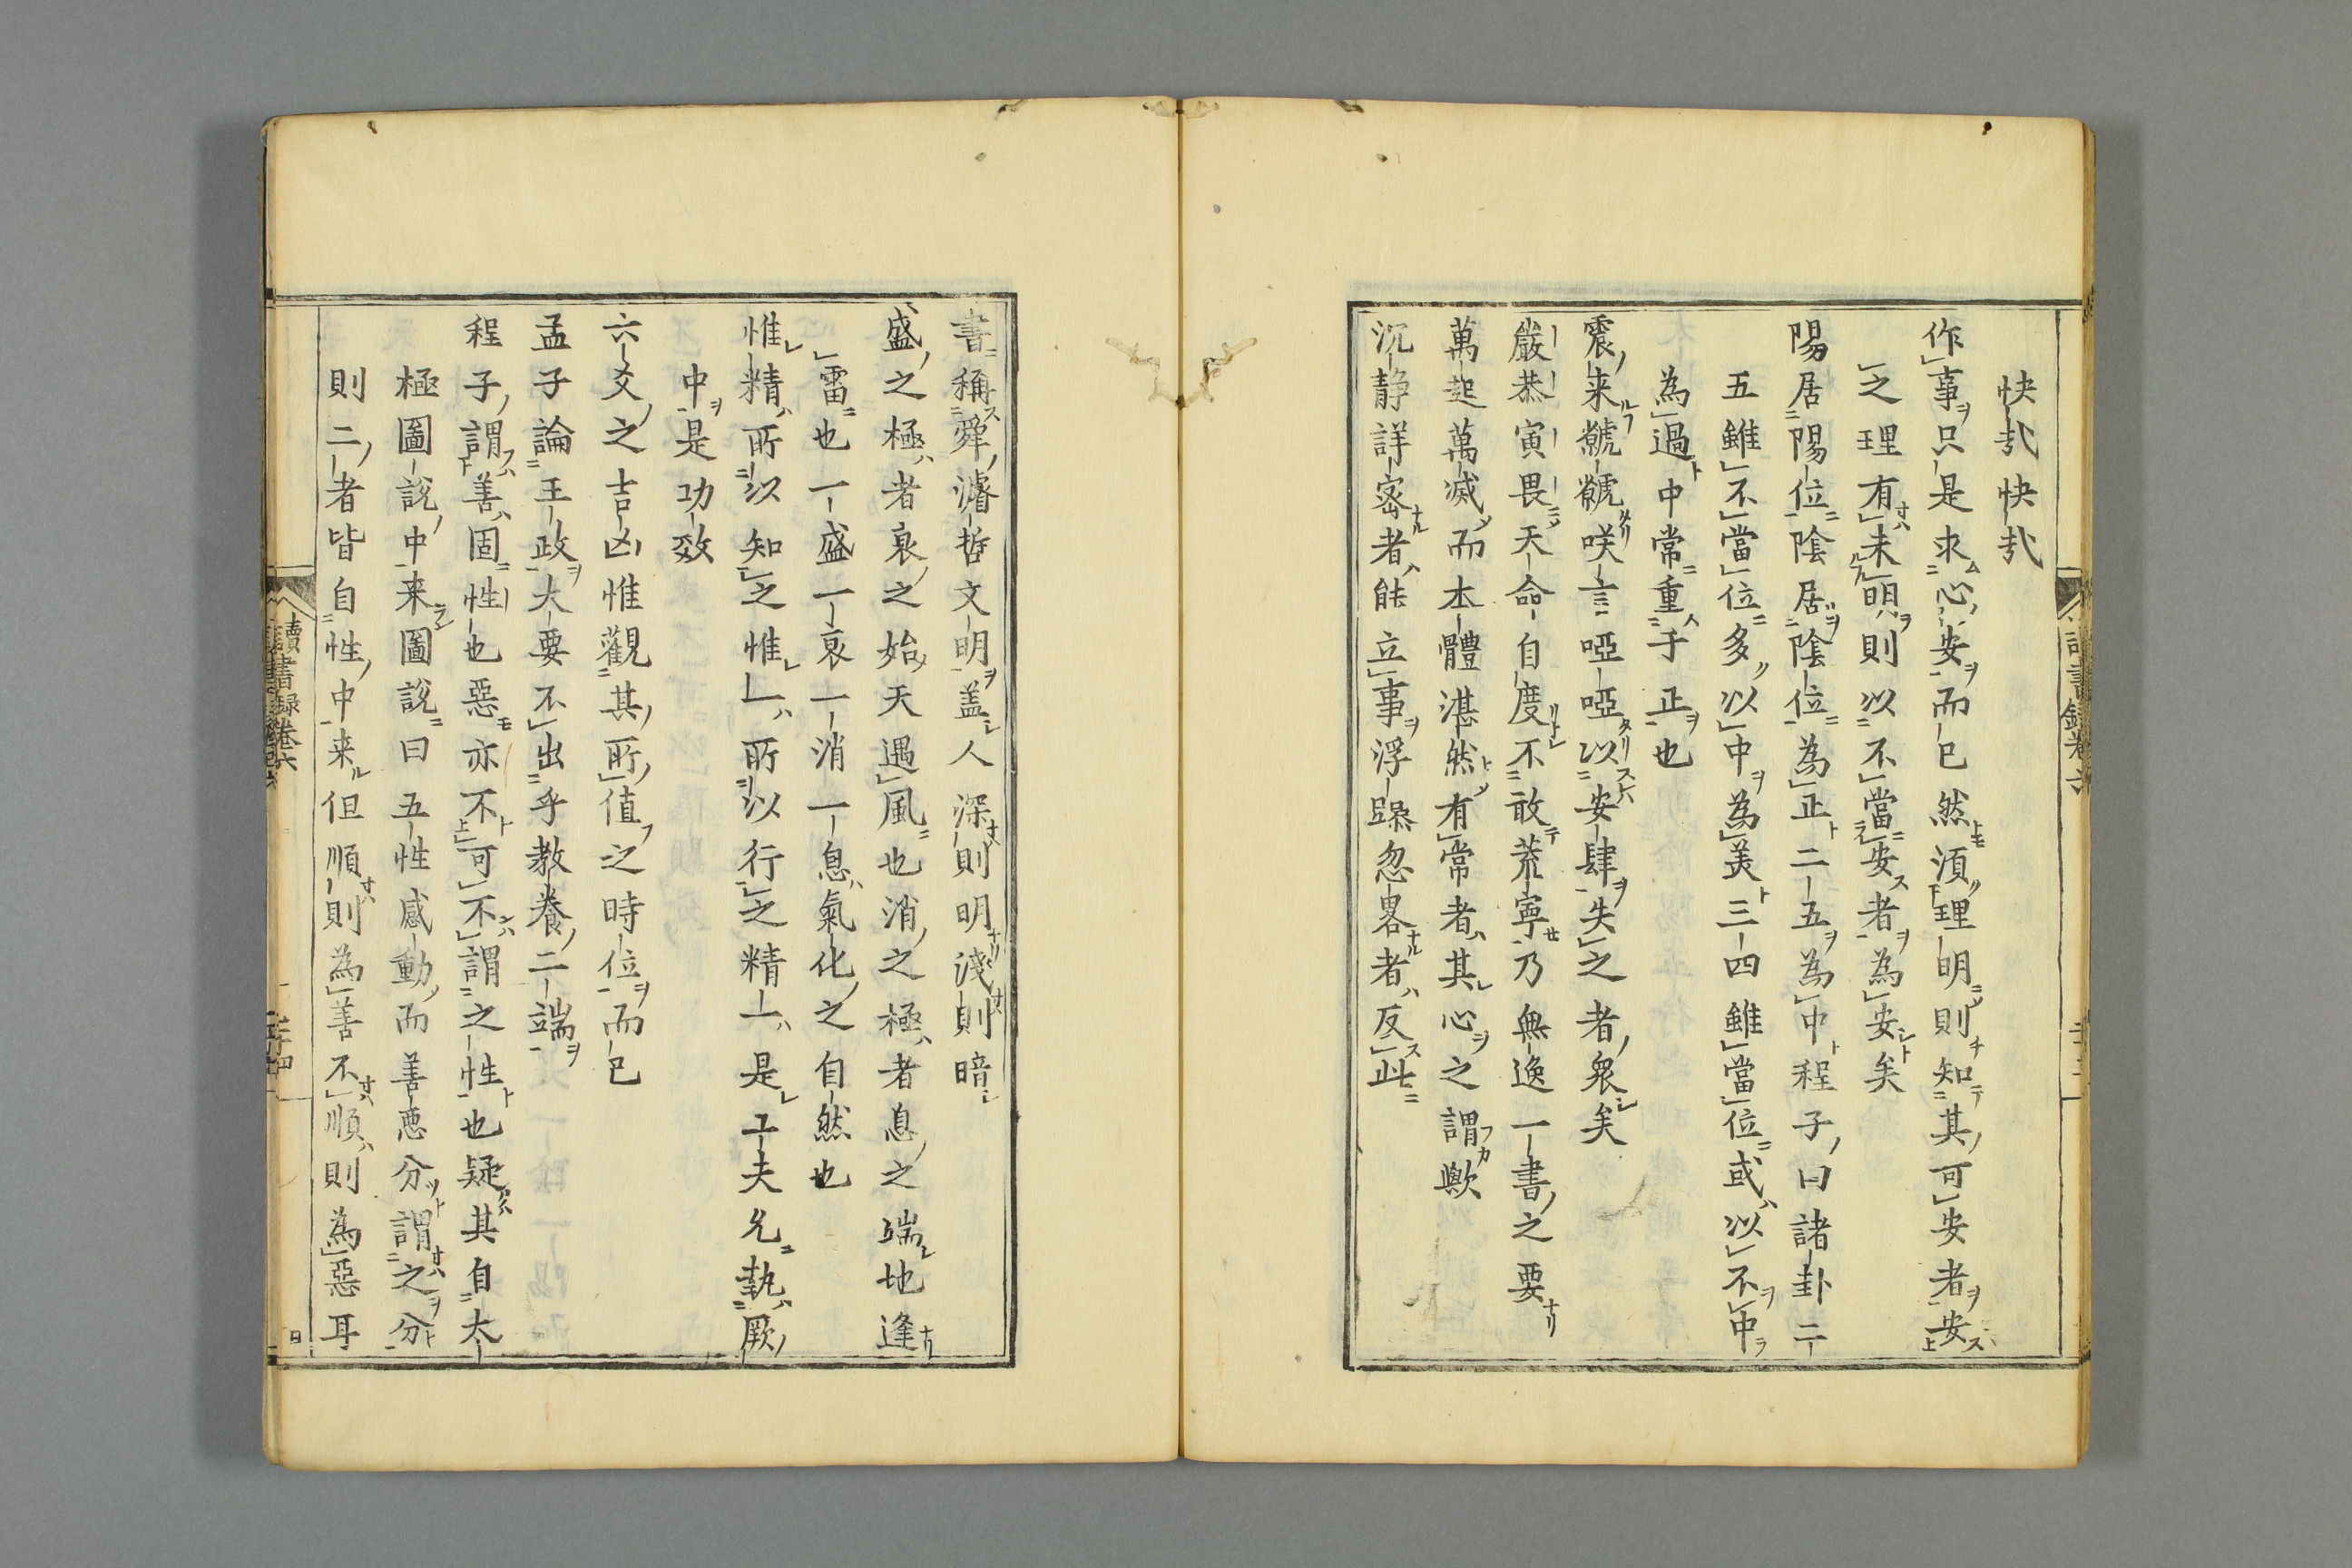 快哉快哉
作事只是求心安而已然湏理明則知其可安者安
之理有未明則以不當安者為安矣
陽居陽位陰居陰位為正二五為中程子曰諸卦二
五雖不當位多以中為美三四雖當位或以不中
為過中常重于正也
震来虩虩咲言啞啞以安肆失之者衆矣
嚴恭寅畏天命自度不敢荒寧乃無逸一書之要
萬起萬滅而本體湛然有常者其心之謂歟
沉静詳宻者能立事浮躁忽畧者反此
書稱舜濬哲文明盖人深則明淺則暗
盛之極者衰之始天遇風也消之極者息之端地逢
雷也一盛一衰一消一息氣化之自然也
惟精所以知之惟一所以行之精一是工夫允執厥
中是功效
六爻之吉凶惟觀其所值之時位而已
孟子論王政大要不出乎教養二端
程子謂善固性也惡亦不可不謂之性也疑其自太
極圖說中来圖說曰五性感動而善惡分謂之分
則二者皆自性中来但順則為善不順則為惡耳
讀書録卷六